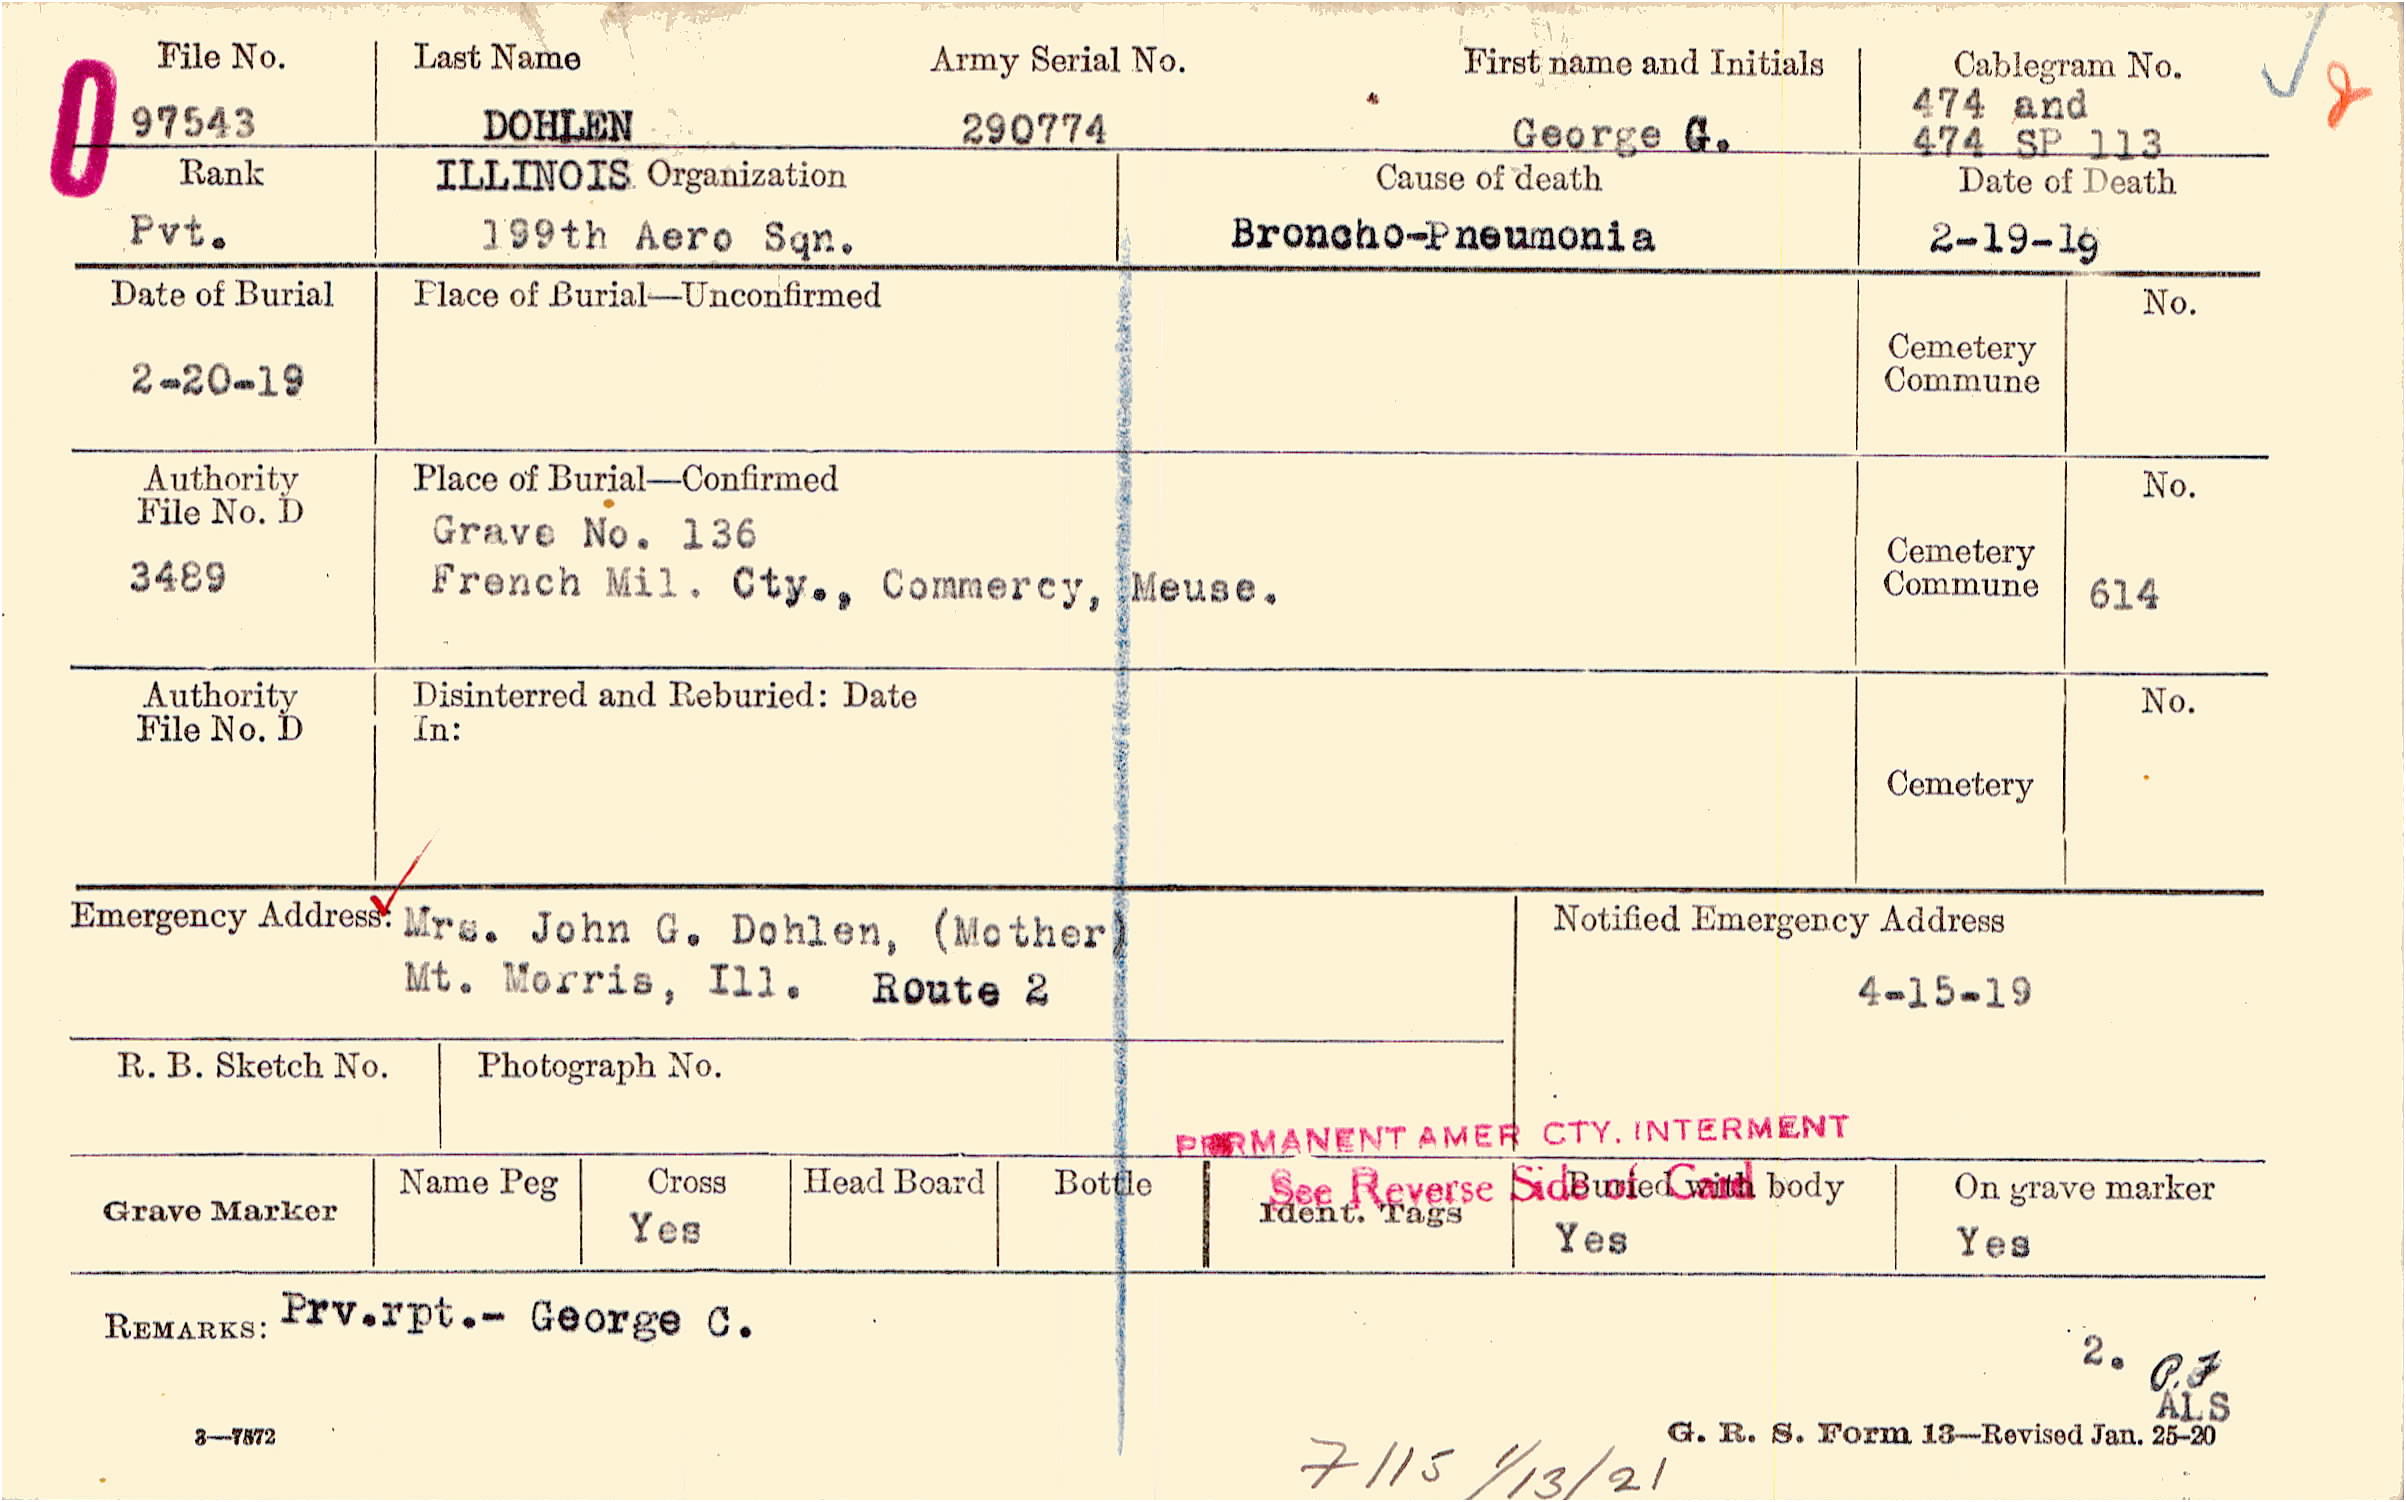 File No. Last Name Army Serial No. First name and Initials Cablegram No.
97543 DOHLEN 290774 George G. 474 and
474 SP 113
2
Rank ILLINOIS Organization Cause of death Date of Death
Pvt. 199th Aero Sqn. Broncho-Pneumonia 2-19-19
Date of Burial Place of Burial—Unconfirmed No.
2-20-19
Cemetery
Commune
Authority
File No. D
3489
Place of Burial—Confirmed
Grave No. 136
French Mil. Cty., Commercy, Meuse.
Cemetery
Commune
No.
614
Authority
File No. D
Disinterred and Reburied: Date
In:
Cemetery
No.
Emergency Address: Mrs. John G. Dohlen, (Mother)
Mt. Morris, Ill. Route 2
Notified Emergency Address
4-15-19
R. B. Sketch No. Photograph No.
PERMANENT AMER CTY. INTERMENT
See Reverse Side of Card
Grave Marker Name Peg Cross Head Board Bottle Ident. Tags Buried with body On grave marker
Yes Yes Yes
REMARKS: Prv.rpt.- George C.
2.
ALS
3—7872 G. R. S. Form 13—Revised Jan. 25-20
7115 1/13/21